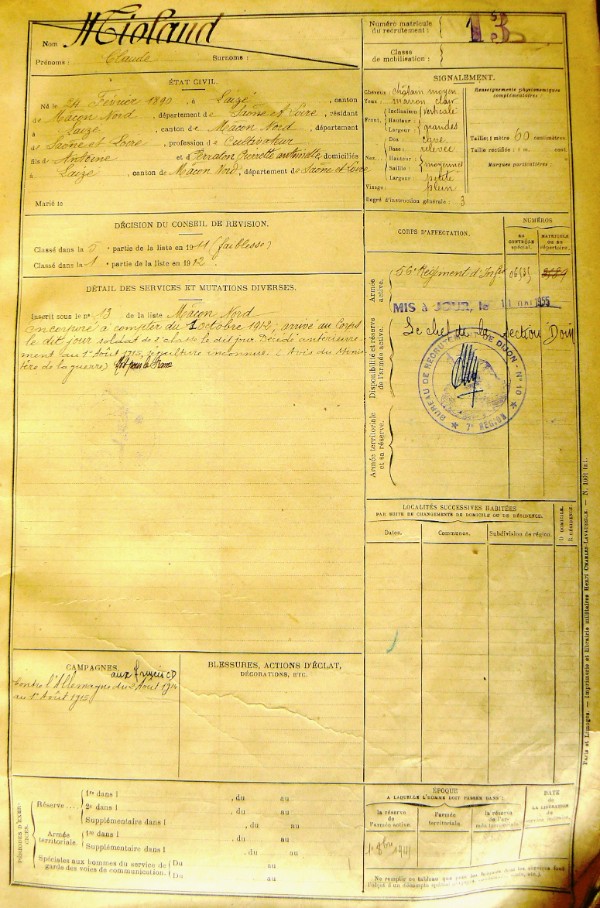 Nom Miolaud
Prénoms : Claude Surnoms :
Numéro matricule
du recrutement :
Classe
de mobilisation :
ÉTAT CIVIL.
Né le 24 Février 1890, à Laizé, canton
de Mâcon Nord, département de Saône et Loire, résidant
à Laizé, canton de Mâcon Nord, département
de Saône et Loire, profession de Cultivateur
fils d'Antoine et d domiciliés
à Laizé, canton de Mâcon Nord, département de Saône et Loire
Marié le
SIGNALEMENT.
Cheveux châtain moyen
Yeux marron clair
Front. Inclinaison verticale
Hauteur
Largeur grandes
Nez. Dos cave
Base relevée
Hauteur
Saillie moyennes
Largeur petite
Visage plein
Degré d'instruction générale : 3
Renseignements physionomiques
complémentaires :
Taille : 1 mètre 60 centimètres
Taille rectifiée : 1 m. cent.
Marques particulières :
DÉCISION DU CONSEIL DE RÉVISION.
Classé dans la 5 partie de la liste en 1911 (faiblesse)
Classé dans la 1 partie de la liste en 1912.
DÉTAIL DES SERVICES ET MUTATIONS DIVERSES.
Inscrit sous le n° 13 de la liste Mâcon Nord
incorporé à compter du 1 octobre 1912, arrivé au Corps
le dit jour soldat de 2 classe le dit jour Décédé antérieure-
ment au 1er Août 1915, sépulture inconnue. (Avis du Minis-
tère de la guerre) Mort pour la France
CORPS D'AFFECTATION.
NUMÉROS
AU CONTRÔLE SPÉCIAL.
MATRICULE OU AU RÉPERTOIRE.
Armée active.
56e Régiment d'Inf
MIS à JOUR, le 1955
Disponibilité et réserve
de l'armée active.
Le chef de la section Dom
BUREAU DE RECRUTEMENT DE DIJON - N° 10
7e RÉGION
Armée territoriale
et sa réserve.
LOCALITÉS SUCCESSIVES HABITÉES
PAR SUITE DE CHANGEMENTS DE DOMICILE OU DE RÉSIDENCE.
Dates. Communes. Subdivision de région. D. DOMICILE. R. RÉSIDENCE.
CAMPAGNES.
aux Armées CD
Contre l'Allemagne du 2 Août 1914
au 1er Août 1915
BLESSURES, ACTIONS D'ÉCLAT,
DÉCORATIONS, ETC.
PÉRIODES D'EXERCICES.
Réserve ... 1re dans l , du au
2e dans l , du au
Supplémentaire dans l , du au
Armée territoriale. 1re dans l , du au
Supplémentaire dans l , du au
Spéciales aux hommes du service de
garde des voies de communication. Du au
Du au
ÉPOQUE
A LAQUELLE L'HOMME DOIT PASSER DANS :
la réserve de l'armée active.
l'armée territoriale.
la réserve de l'armée territoriale.
DATE
DE LA LIBÉRATION DU SERVICE MILITAIRE.
Paris et Limoges. — Imprimerie et librairie militaires Henri CHARLES-LAVAUZELLE.